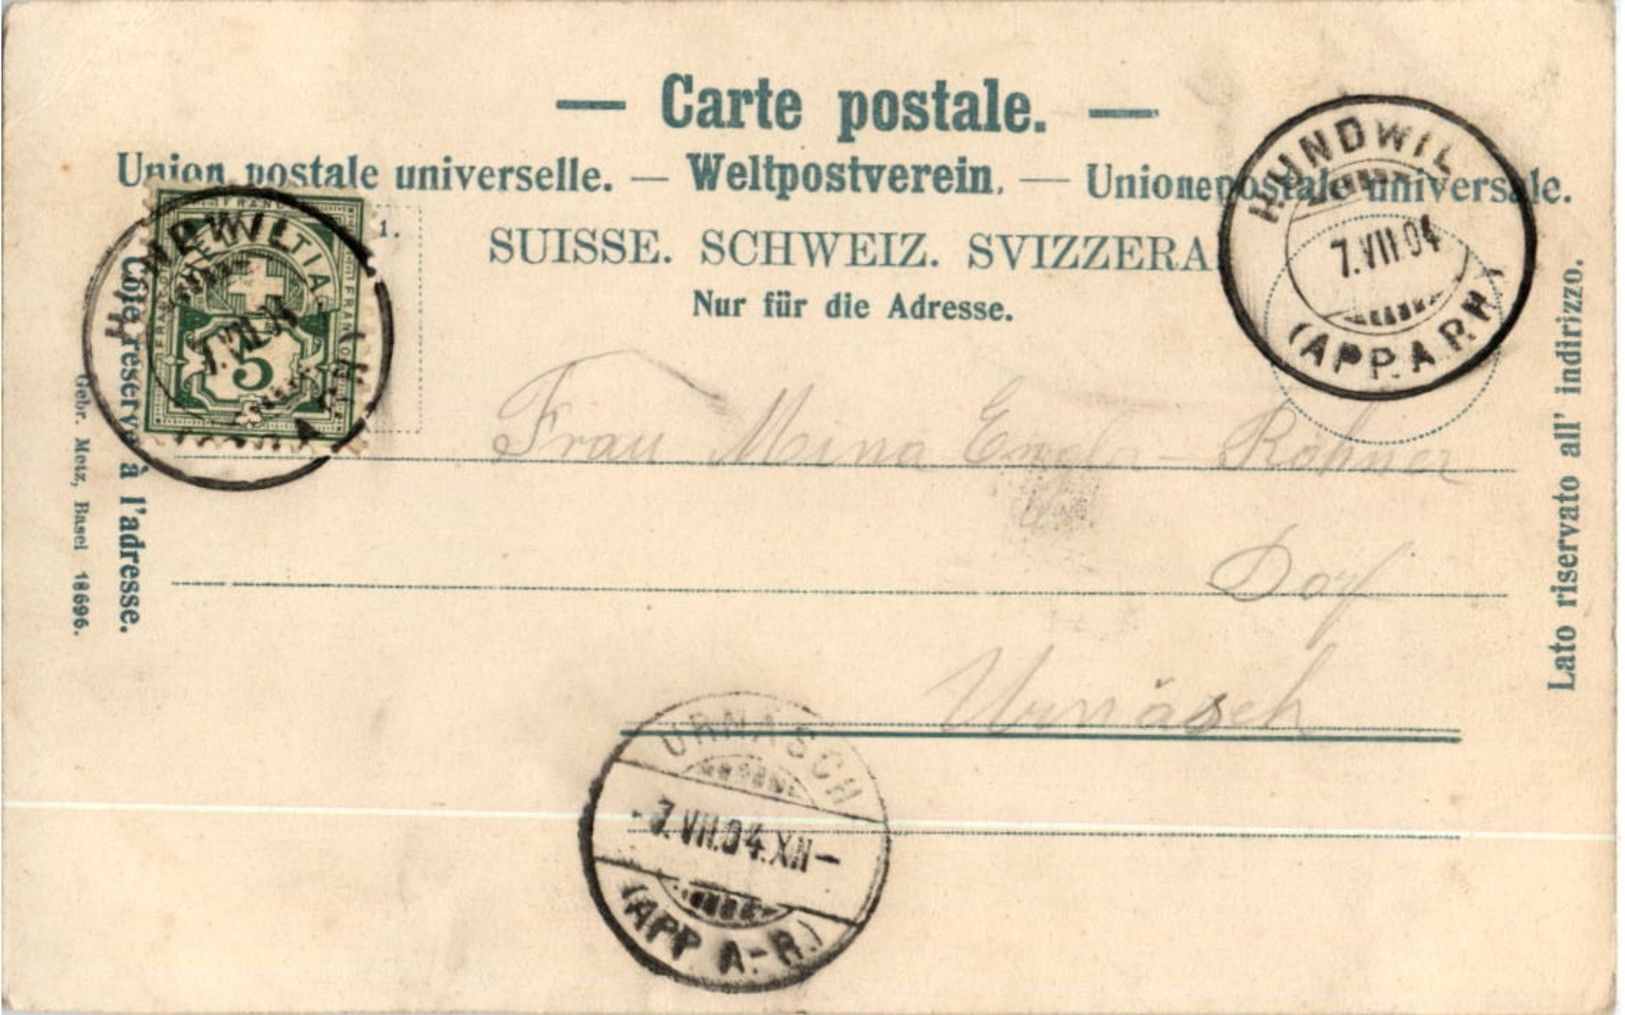 — Carte postale. —
Union postale universelle. — Weltpostverein. — Unione postale universale.
SUISSE. SCHWEIZ. SVIZZERA.
Nur für die Adresse.
1.
HUNDWIL
7.VII.04
(APP. A.RH)
FRANCO
HELVETIA
5
HUNDWIL
7.VII.04
Côté réservé à l'adresse.
Gebr. Metz, Basel 18696.
Lato riservato all' indirizzo.
Frau Mina Engler-Rohner
Dorf
Urnäsch
URNÄSCH
-7.VII.04.XII-
(APP. A.-R.)